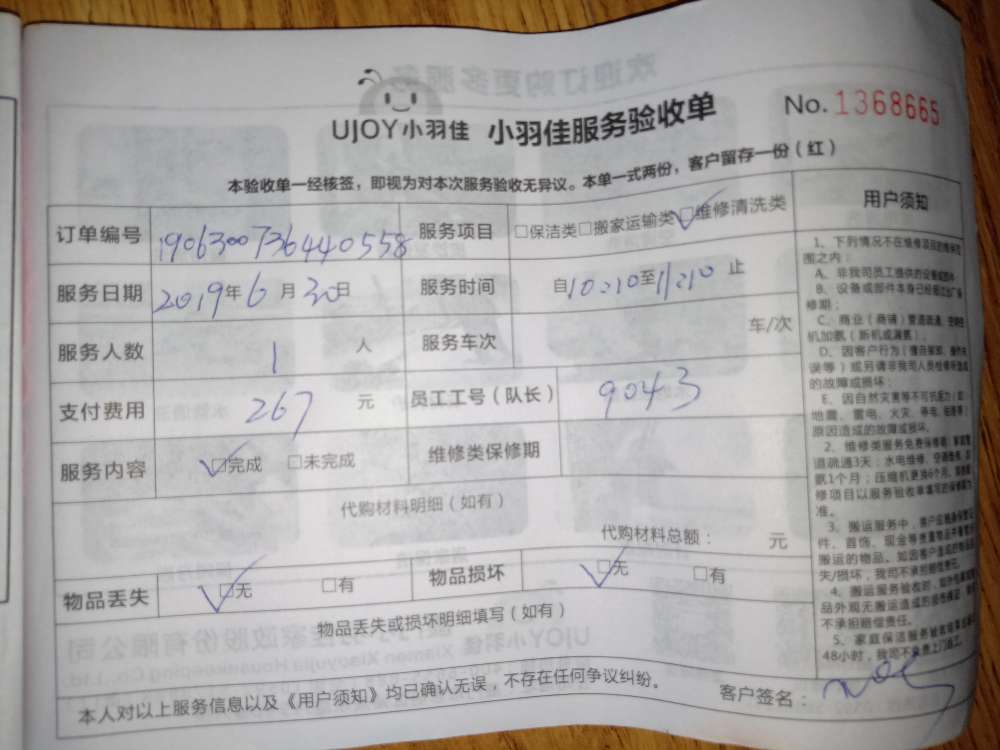 UJOY小羽佳 小羽佳服务验收单 No. 1368665
本验收单一经核签，即视为对本次服务验收无异议。本单一式两份，客户留存一份（红）
订单编号 190630073644０558 服务项目 □保洁类□搬家运输类□维修清洗类
服务日期 2019年6月30日 服务时间 自10:10至11:10止
服务人数 1 人 服务车次 车/次
支付费用 267 元 员工工号（队长） 9043
服务内容 □完成 □未完成 维修类保修期
代购材料明细（如有）
代购材料总额： 元
物品丢失 □无 □有 物品损坏 □无 □有
物品丢失或损坏明细填写（如有）
本人对以上服务信息以及《用户须知》均已确认无误，不存在任何争议纠纷。 客户签名：
用户须知
1、下列情况不在维修项目的维保范
围之内：
A、非我司员工提供的设备或部件
B、设备或部件本身已经超过出厂保
修期；
C、商业（商铺）管道疏通、空调任
机加氨（新机或漏氨）
D、因客户行为（擅自拆卸、操作失
误等）或另请非我司人员维修所造成
的故障或损坏；
E、因自然灾害等不可抗原力（如
地震、雷电、火灾、停电、
原因造成的故障或损坏。
2、维修类服务免费保修期：家庭管
道疏通3天；水电维修、空调
氨1个月；压缩机更换6个月，
修项目以服务验收单填写的保修期为
准。
3、搬运服务中，客户应
件、首饰、现金等贵重物品
搬运的物品。如因客户造成的物品
失/损坏，我司不承担赔偿责任。
4、搬运服务验收时，如外包装
品外观无搬运造成的损伤痕迹，
不承担赔偿责任。
5、家庭保洁服务验收
48小时，我司不免费上门返工。